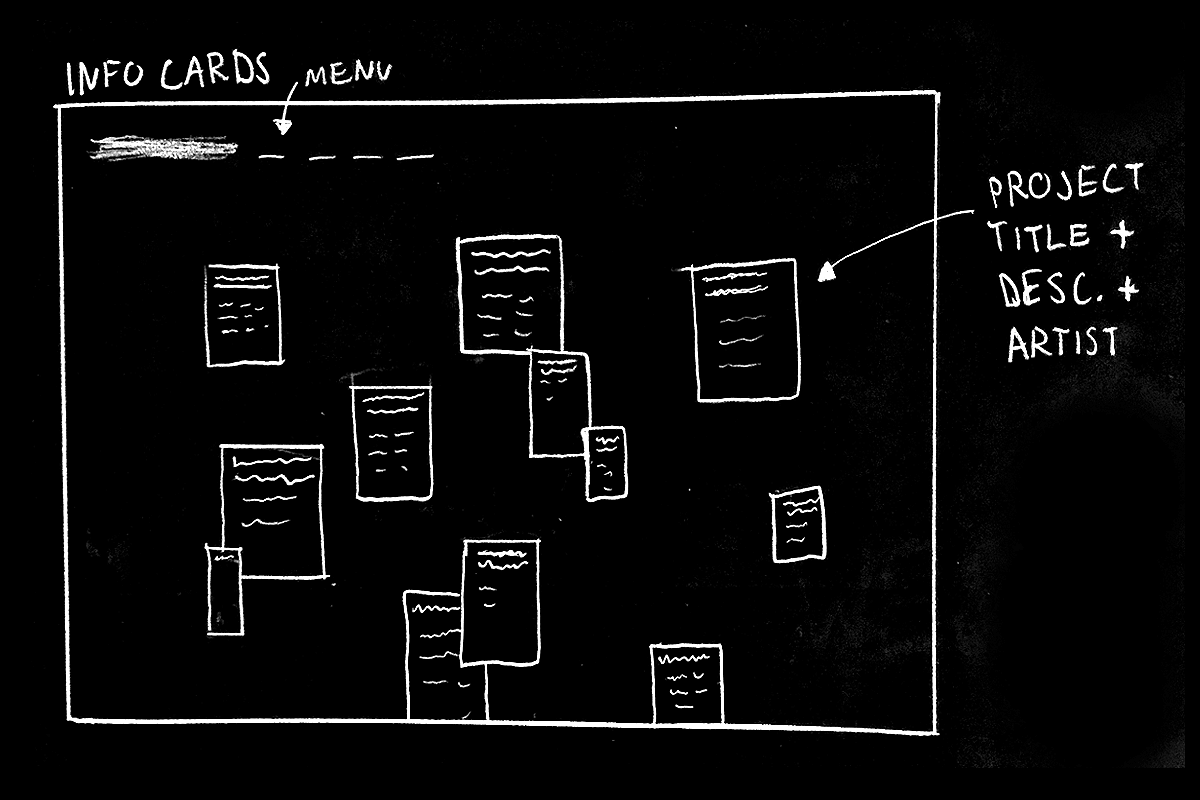 INFO CARDS
MENU
PROJECT
TITLE +
DESC. +
ARTIST